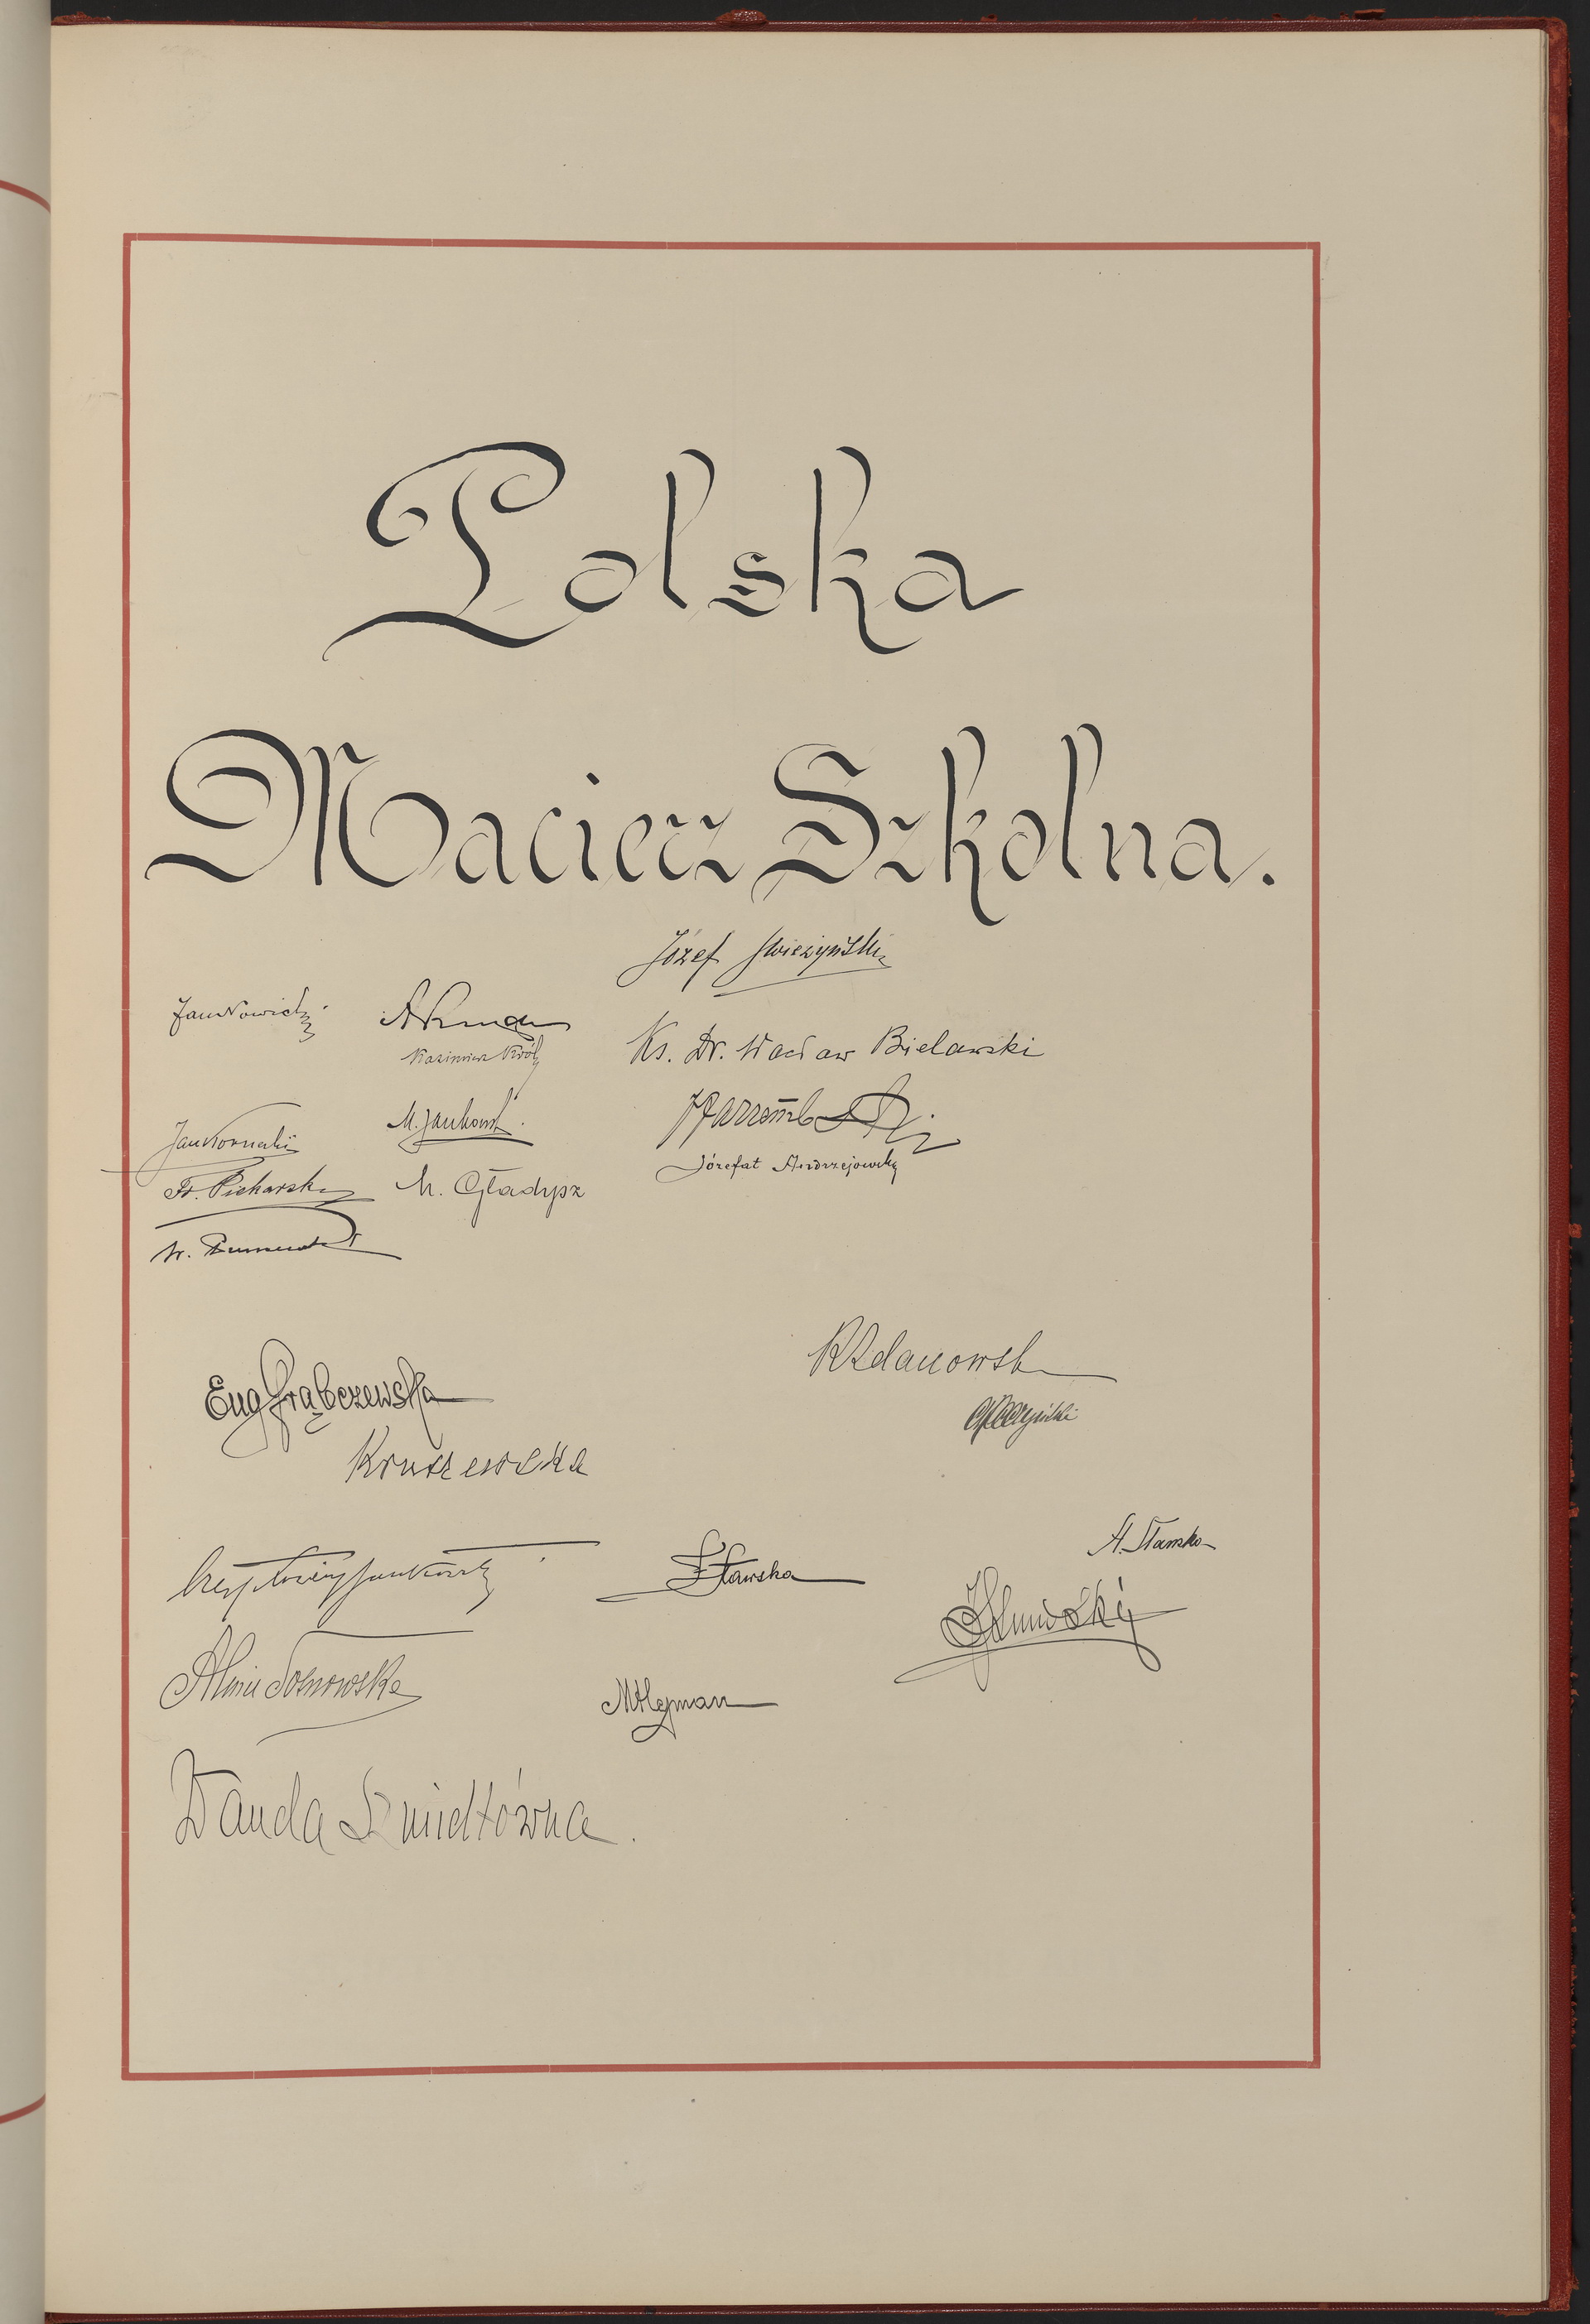 Polska
Macierz Szkolna.
Józef Świeżyński
Jan Nowicki
Kazimierz Król
Ks. Dr. Wacław Bielawski
Jan Kornecki
M. Jankowsk
Józefat Andrzejowski
Fr. Piekarski
M. Gładysz
RZdanowsk
Eug Grąbczewska
Kruszewska
A. Sławska
Sławska
Alina Sosnowska
MHeyman
Wanda Szmidtówna.